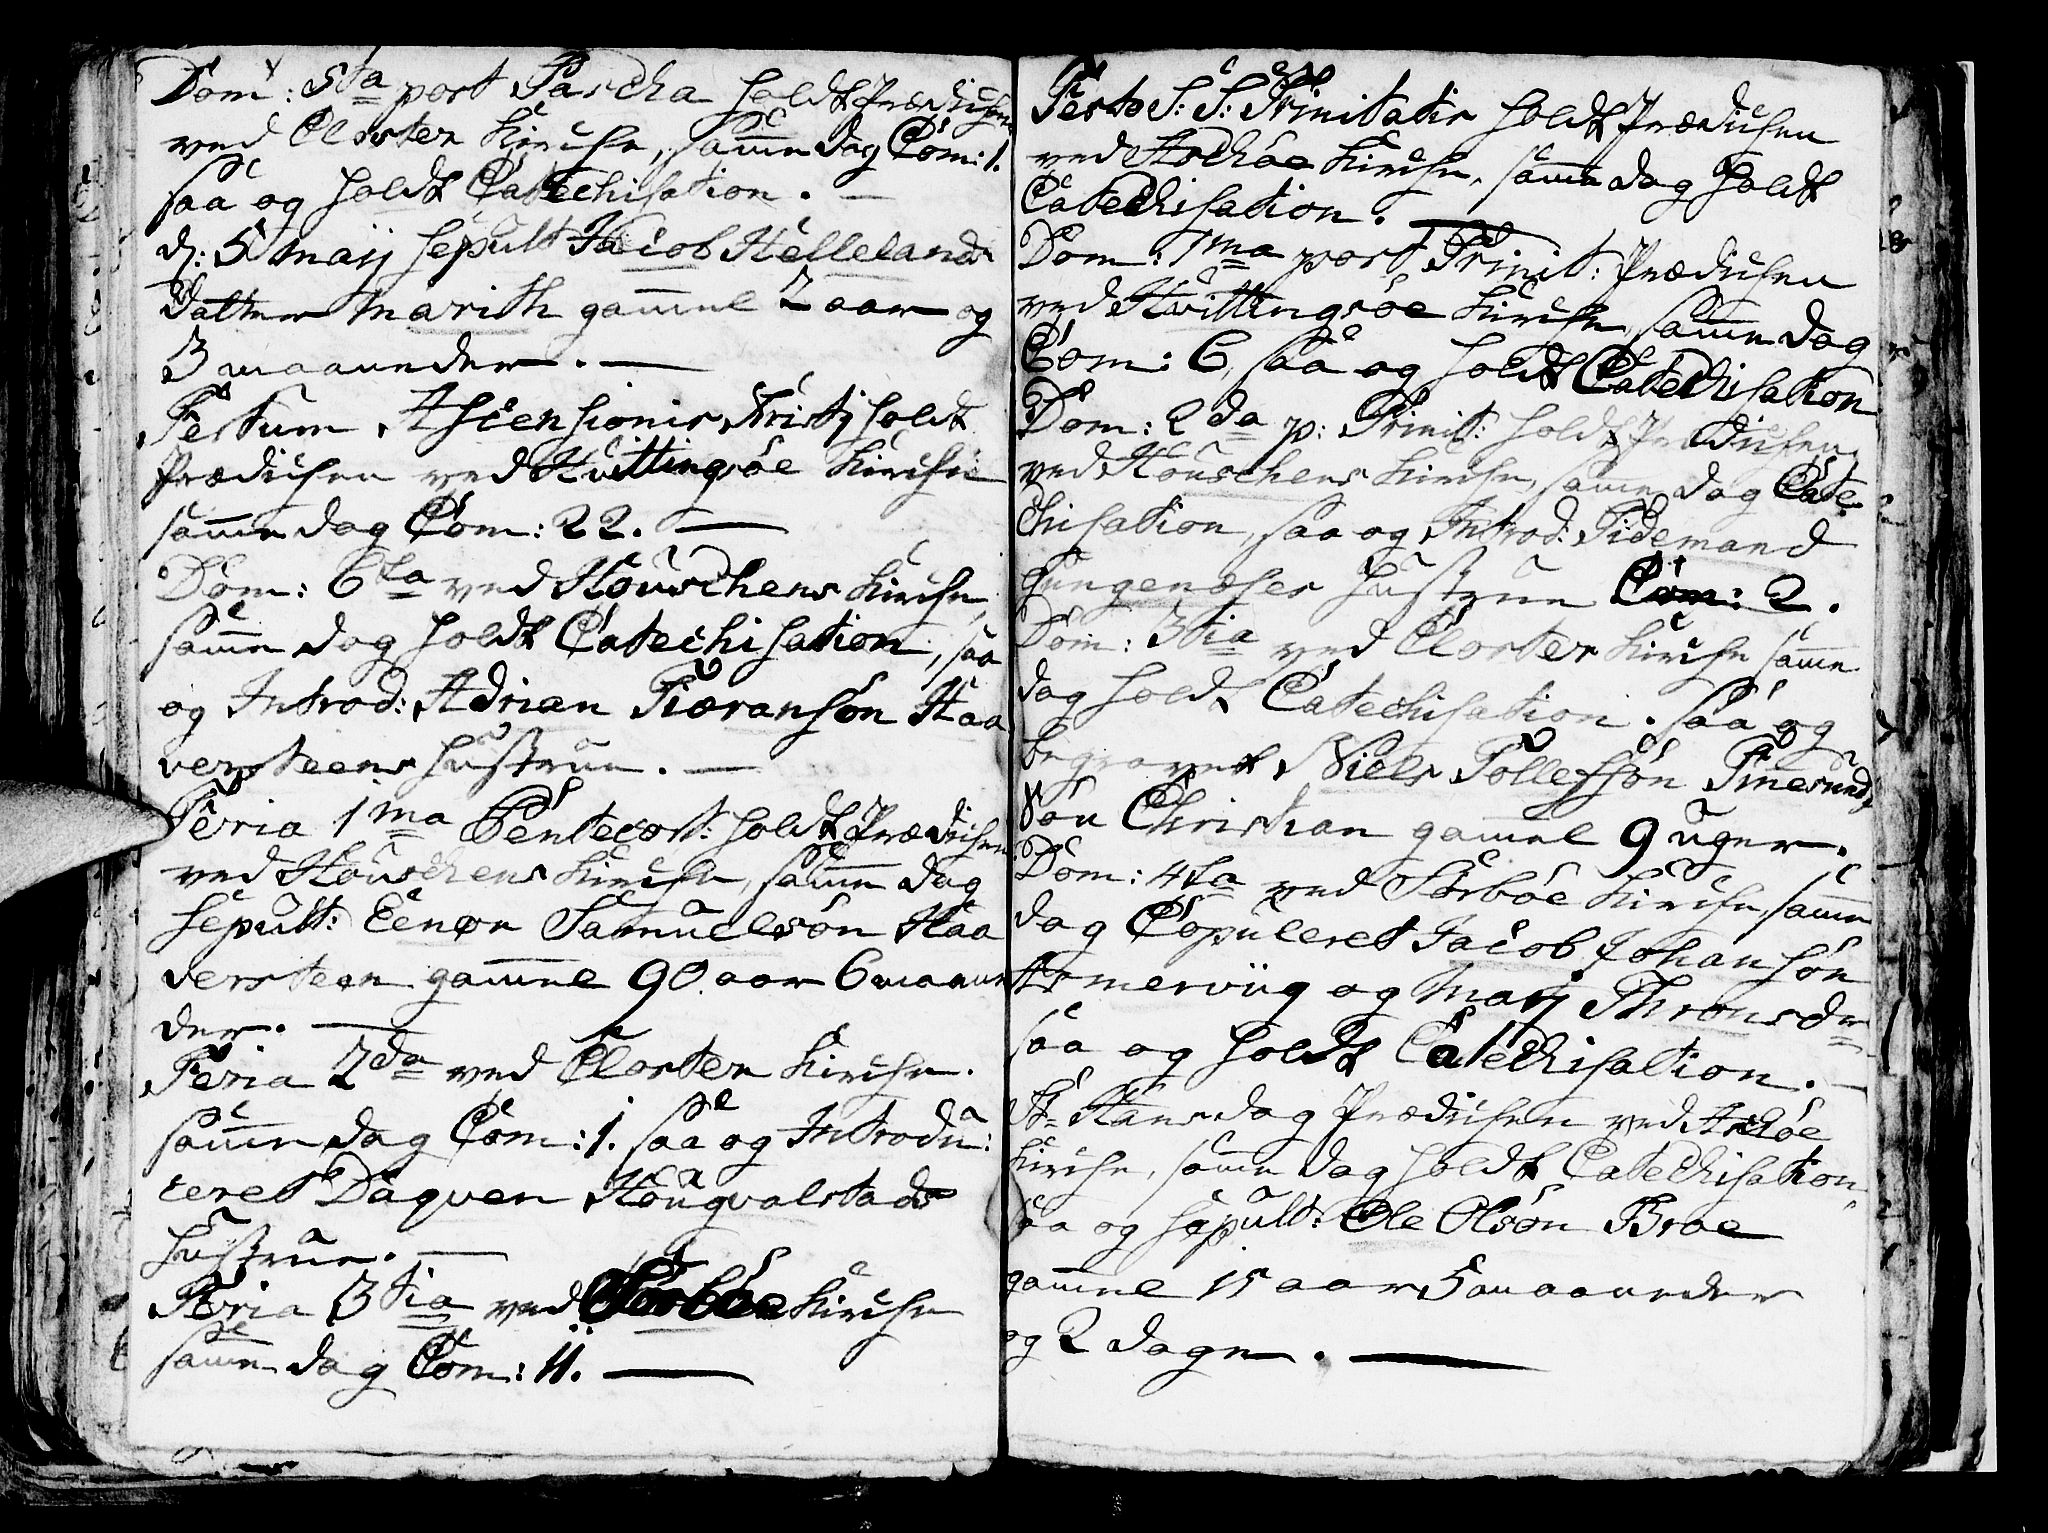 Dom: 5ta post Pascha holdt Prædichen
ved Closter Kirche, samme dag Com: 1.
saa og holdt Catechisation. —
d: 5 Maij sepult Jacob Hellelands
datter Marith gammel 2 aar og
3 maaneder. —
Festum Ascensionis Kristj holdt
Prædichen ved Hvittingsöe Kirche
samme dag Com: 22. —
Dom: 6ta ved Houschens Kirche,
samme dag holdt Catechisation, saa
og Introd: Adrian Siøransön Haa
versteens hustrue. —
Feria 1ma Pentecost: holdt Prædichen
ved Houschens Kirche, samme dag
sepult: Eenør Samuelsön Haa
versteen gammel 90 aar 6 maane
der. —
Feria 2da ved Closter Kirche.
samme dag Com: 1. saa og Introdu:
ceret Daqven Houqvalstads
hustrue. —
Feria 3tia ved Sørböe Kirche
samme dag Com: 11. —
Festo S: S: Trinitatis holdt Prædichen
ved Aschöe Kirche, samme dag holdt
Catechisation. —
Dom: 1ma post Trinit: Prædichen
ved Hvittingsöe Kirche, samme dag
Com: 6, saa og holdt Catechisation
Dom: 2da p: Trinit: holdt Prædichen
ved Houschens Kirche, samme dag Cate
chisation, saa og Introd: Tidemand
Hungenæses hustrue Com: 2.
Dom: 3tia ved Closter Kirche samme
dag holdt Catechisation. saa og
begravet Niels Tollefsön Finesunds
Sön Christian gammel 9 uger.
Dom: 4ta ved Sörböe Kirche, samme
dag Copuleret Jacob Johansön
Asmerviig og Marj Thronsdr
saa og holdt Catechisation. —
St Hansdag Prædichen ved Aschöe
Kirche, samme dag holdt Catechisation
saa og sepult: Ole Olsön Broe
gammel 15 aar 5 maaneder
og 2 dage. —